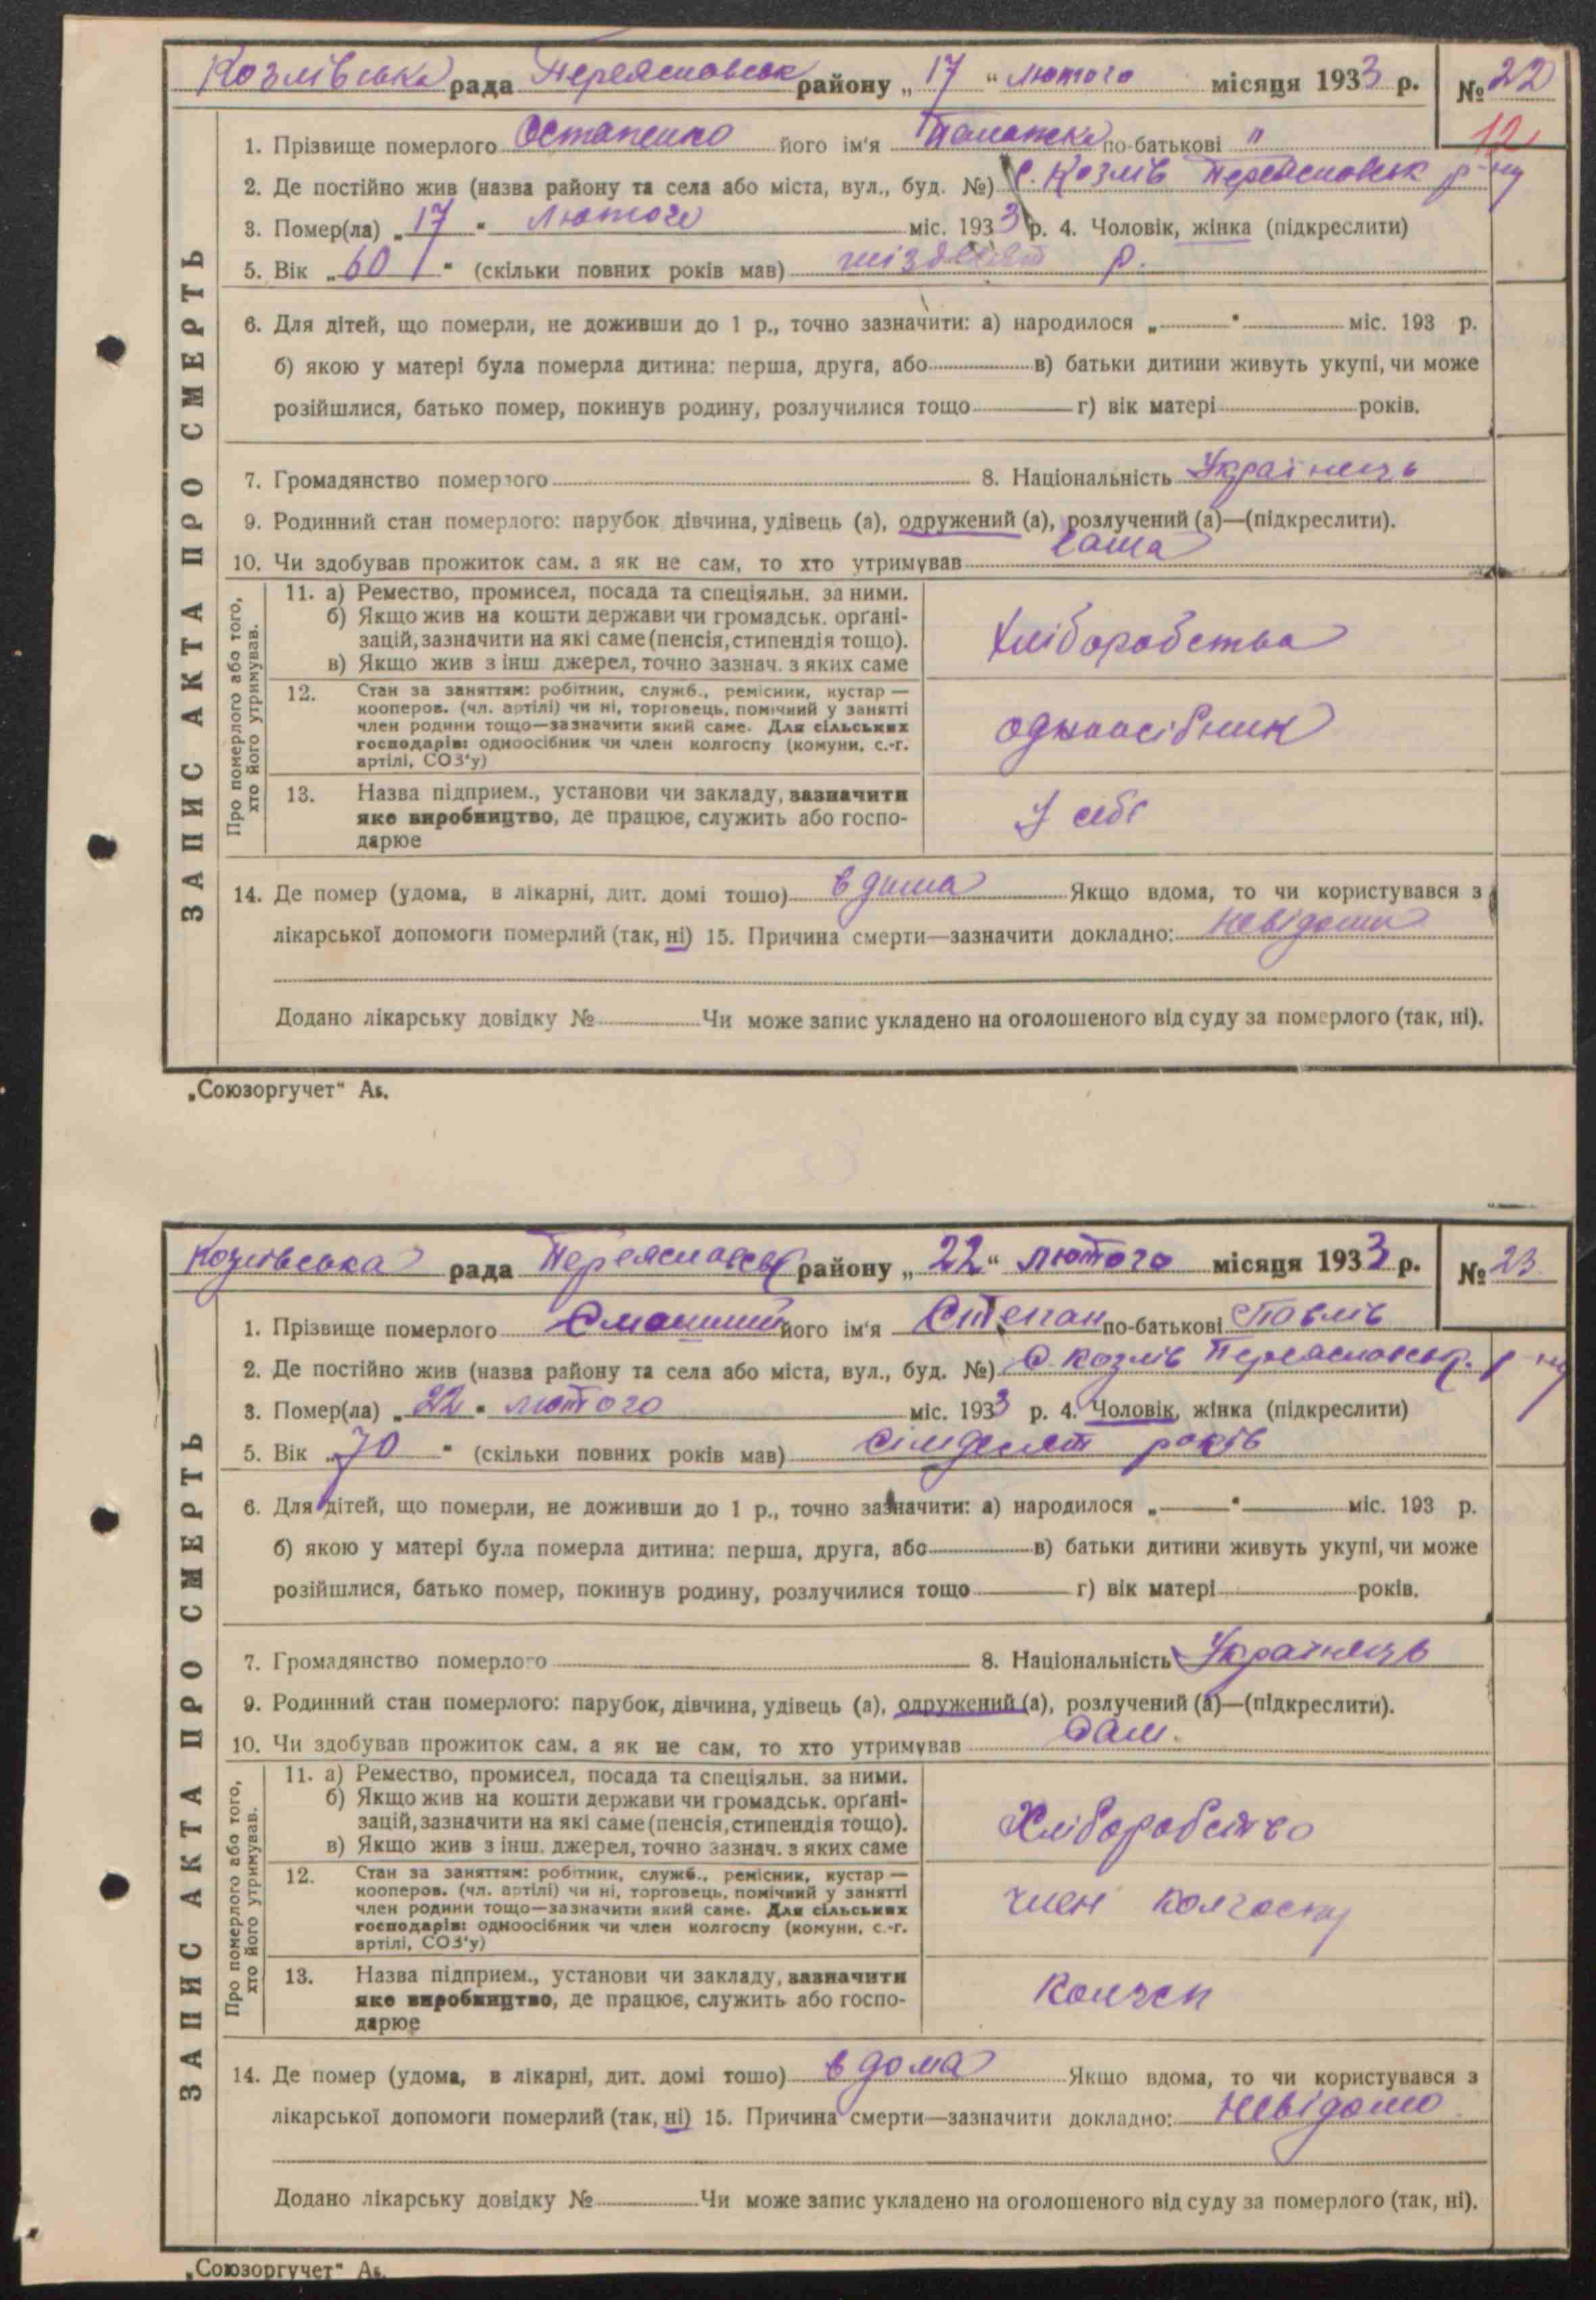 Козлівська рада Переяславськ району „ 17 “ лютого місяця 1933 р. № 22
12
1. Прізвище померлого Остапенко його ім'я по-батькові "
2. Де постійно жив (назва району та села або міста, вул., буд. №) С. Козлів Переяславськ р-ну
3. Помер(ла) „ 17 " лютого міс. 1933 р. 4. Чоловік, жінка (підкреслити)
5. Вік „ 60 " (скільки повних років мав) шіздесят р.
6. Для дітей, що померли, не доживши до 1 р., точно зазначити: а) народилося „ " міс. 193 р.
б) якою у матері була померла дитина: перша, друга, або в) батьки дитини живуть укупі, чи може
розійшлися, батько помер, покинув родину, розлучилися тощо г) вік матері років.
7. Громадянство померлого 8. Національність Українець
9. Родинний стан померлого: парубок дівчина, удівець (а), одружений (а), розлучений (а)—(підкреслити).
10. Чи здобував прожиток сам, а як не сам, то хто утримував сама
ЗАПИС АКТА ПРО СМЕРТЬ
Про померлого або того, хто його утримував.
11. а) Ремество, промисел, посада та спеціяльн. за ними.
б) Якщо жив на кошти держави чи громадськ. орґані-
зацій, зазначити на які саме (пенсія, стипендія тощо).
в) Якщо жив з інш джерел, точно зазнач. з яких саме
Хліборобства
12. Стан за заняттям: робітник, служб., ремісник, кустар —
кооперов. (чл. артілі) чи ні, торговець, помічний у занятті
член родини тощо—зазначити який саме. Для сільських
господарів: одноосібник чи член колгоспу (комуни, с.-г.
артілі, СОЗ'у)
одноосібник
13. Назва підприєм., установи чи закладу, зазначити
яке виробництво, де працює, служить або госпо-
дарює
У себе
14. Де помер (удома, в лікарні, дит. домі тощо) вдома Якщо вдома, то чи користувався з
лікарської допомоги померлий (так, ні) 15. Причина смерти—зазначити докладно: невідомо
Додано лікарську довідку № Чи може запис укладено на оголошеного від суду за померлого (так, ні).
„Союзоргучет" А₅.
Козлівська рада Переяславськ району „ 22 “ лютого місяця 1933 р. № 23
1. Прізвище померлого його ім'я Степан по-батькові Павлів
2. Де постійно жив (назва району та села або міста, вул., буд. №) С. Козлів Переяславськ. р-ну
3. Помер(ла) „ 22 " лютого міс. 1933 р. 4. Чоловік, жінка (підкреслити)
5. Вік „ 70 " (скільки повних років мав) сімдесят років
6. Для дітей, що померли, не доживши до 1 р., точно зазначити: а) народилося „ " міс. 193 р.
б) якою у матері була померла дитина: перша, друга, або в) батьки дитини живуть укупі, чи може
розійшлися, батько помер, покинув родину, розлучилися тощо г) вік матері років.
7. Громадянство померлого 8. Національність Українець
9. Родинний стан померлого: парубок, дівчина, удівець (а), одружений (а), розлучений (а)—(підкреслити).
10. Чи здобував прожиток сам, а як не сам, то хто утримував Сам.
ЗАПИС АКТА ПРО СМЕРТЬ
Про померлого або того, хто його утримував.
11. а) Ремество, промисел, посада та спеціяльн. за ними.
б) Якщо жив на кошти держави чи громадськ. орґані-
зацій, зазначити на які саме (пенсія, стипендія тощо).
в) Якщо жив з інш. джерел, точно зазнач. з яких саме
Хліборобство
12. Стан за заняттям: робітник, служб., ремісник, кустар —
кооперов. (чл. артілі) чи ні, торговець, помічний у занятті
член родини тощо—зазначити який саме. Для сільських
господарів: одноосібник чи член колгоспу (комуни, с.-г.
артілі, СОЗ'у)
член колгоспу
13. Назва підприєм., установи чи закладу, зазначити
яке виробництво, де працює, служить або госпо-
дарює
14. Де помер (удома, в лікарні, дит. домі тощо) вдома Якщо вдома, то чи користувався з
лікарської допомоги померлий (так, ні) 15. Причина смерти—зазначити докладно: Невідомо
Додано лікарську довідку № Чи може запис укладено на оголошеного від суду за померлого (так, ні).
„Союзоргучет" А₅.